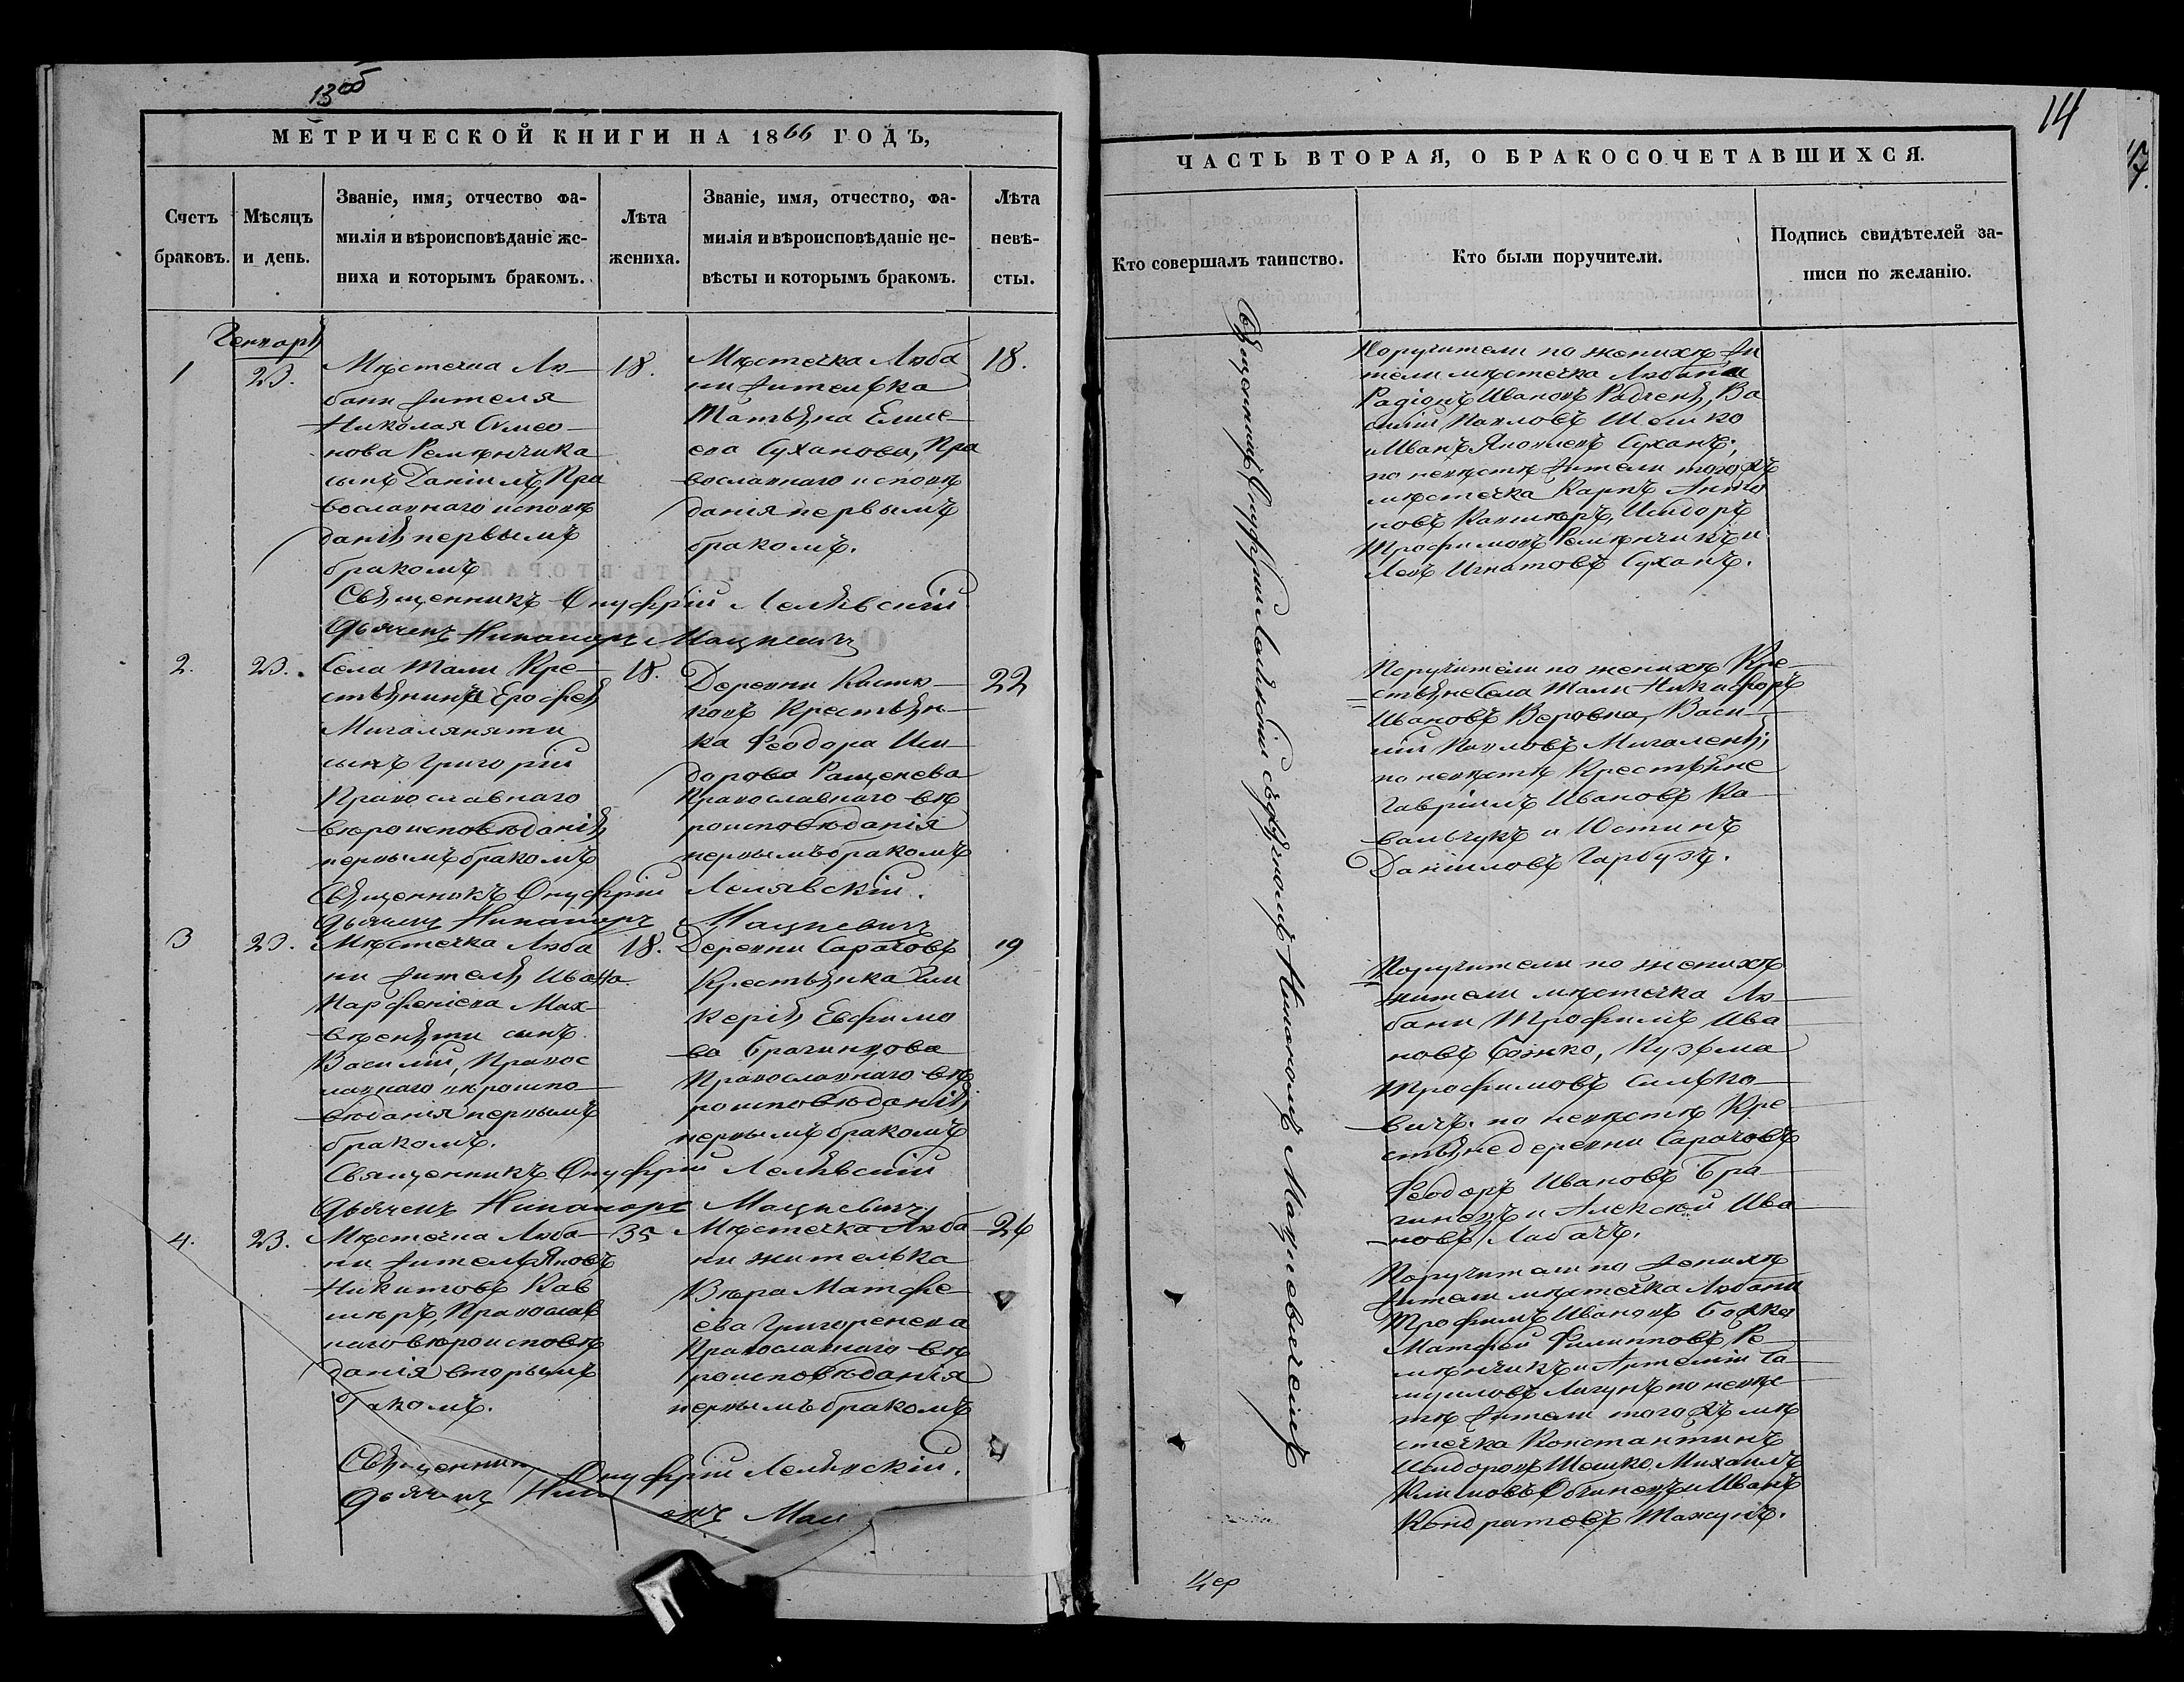 13об
МЕТРИЧЕСКОЙ КНИГИ НА 1866 ГОДЪ,
Счетъ браковъ.
Мѣсяцъ и день.
Званіе, имя, отчество фа-
милія и вѣроисповѣданіе же-
ниха и которымъ бракомъ.
Лѣта жениха.
Званіе, имя, отчество, фа-
милія и вѣроисповѣданіе не-
вѣсты и которымъ бракомъ.
Лѣта
невѣ-
сты.
Генварь
1
23.
Мѣстечка Лю-
бани жителя
Николая Симео-
нова Ремѣнчика
сынъ Даніилъ, Пра
вославнаго исповѣ
данія первымъ
бракомъ
18.
Мѣстечка Люба
ни жителька
Татьяна Елисе-
ева Суханова, Пра
вославнаго исповѣ
данія первымъ
бракомъ.
18.
Священникъ Онуфрій Лелявскій
Дьячекъ Никаноръ Мацкевичъ
2.
23.
Села Тали Кре-
стьянина Ерофея
сынъ Григорій
Православнаго
вѣроисповѣданія
первымъ бракомъ
18.
Деревни Костю-
ковъ Крестьян-
ка Феодора Иси-
дорова Ращенева
Православнаго вѣ
роисповѣданія
первымъ бракомъ
22
Священникъ Онуфрій Лелявскій.
Дьячекъ Никаноръ Мацкевичъ
3
23.
Мѣстечка Люба
ни жителя Ивана
Парфеніева Мат-
сынъ
Василій, Правос
лавнаго вѣроиспо-
вѣданія первымъ
бракомъ.
18.
Деревни Сарачовъ
Крестьянка Гли
керія Евфимо
ва Брагинцова
Православнаго вѣ
роисповѣданія
первымъ бракомъ
19
Священникъ Онуфрій Лелявскій
Дьячекъ Никаноръ Мацкевичъ
4.
23.
Мѣстечка Люба
ни житель Яковъ
Никитовъ Каш
нѣръ, Православ
наго вѣроисповѣ
данія вторымъ
бракомъ.
35
Мѣстечка Люба
ни жителька
Вѣра Матфе-
ева Григоренева
Православнаго вѣ
роисповѣданія
первымъ бракомъ
26
Священникъ Онуфрій Лелявскій.
Дьячекъ
14
ЧАСТЬ ВТОРАЯ, О БРАКОСОЧЕТАВШИХСЯ.
Кто совершалъ таинство.
Кто были поручители.
Подпись свидѣтелей за-
писи по желанію.
Священникъ Онуфрій Лелявскій съ дьячкомъ Никаноромъ Мацкевичемъ
Поручители по женихѣ жи
тели мѣстечка Любани
Радіонъ Ивановъ Радченя, Ва
силій Павловъ Шешко
и Иванъ Яковлевъ Суханъ;
по невѣстѣ жители того жъ
мѣстечка Карпъ Анто
новъ Кашнѣръ, Исидоръ
Трофимовъ Ремѣнчикъ и
Левъ Игнатовъ Суханъ.
Поручители по женихѣ Кре-
стьяне Села Тали Никифоръ
Ивановъ Веровка, Васи-
лій Павловъ Мигаленя;
по невѣстѣ Крестьяне
Гавріилъ Ивановъ Ко-
вальчукъ и Юстинъ
Даніиловъ Гарбузъ.
Поручители по женихѣ
жители мѣстечка Лю-
бани Трофимъ Ива
новъ Божко, Кузьма
Трофимовъ Силько-
вичъ. по невѣстѣ Кре
стьяне деревни Сарачовъ
Феодоръ Ивановъ Бра-
гинецъ и Алексѣй Ива-
новъ Лабачъ.
Поручители по женихѣ
жители мѣстечка Любани
Трофимъ Ивановъ Божко
Матфей Филиповъ Ре-
мѣнчикъ и Артемій Са-
муиловъ Лагунъ по невѣс-
тѣ жители того жъ мѣ
стечка Константинъ
Исидоровъ Шешко, Михаилъ
Климовъ и Иванъ
Кондратовъ